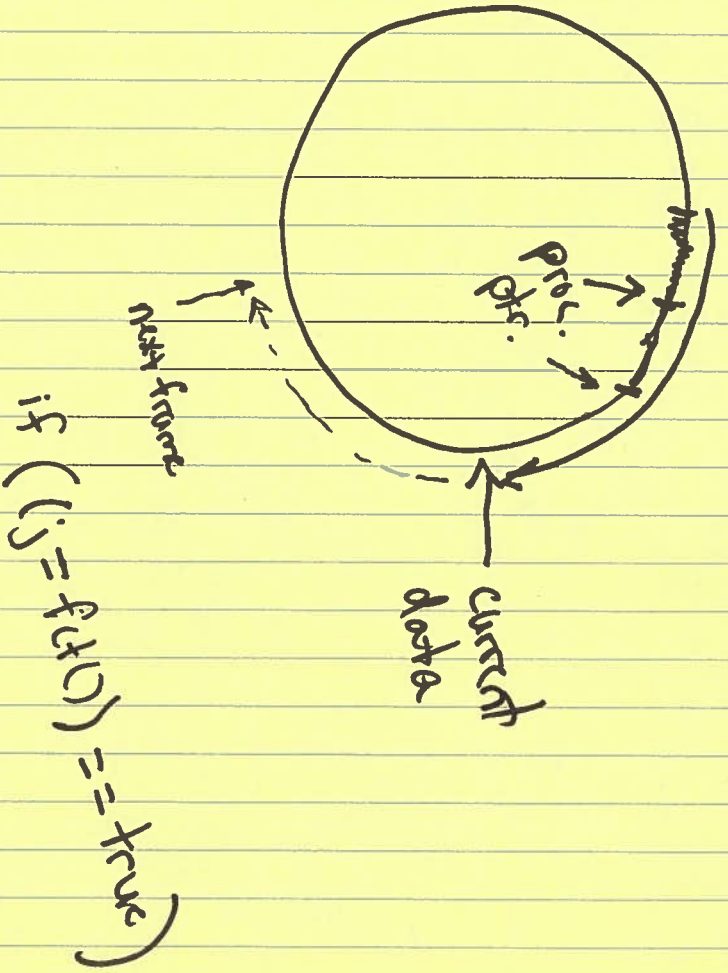 proc.
ptr.
current
data
next frame
if ((j = fct()) == true)